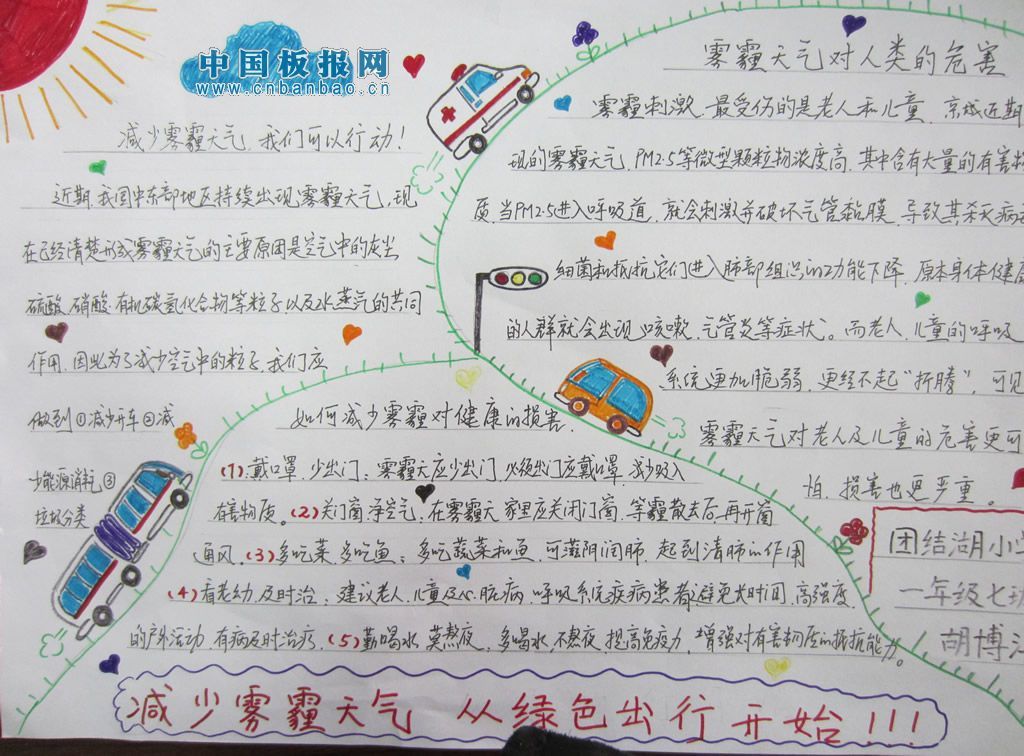 中国板报网
www.cnbanbao.cn
减少雾霾天气，我们可以行动！
近期，我国中东部地区持续出现雾霾天气，现
在已经清楚形成雾霾天气的主要原因是空气中的灰尘
硫酸、硝酸、有机碳氢化合物等粒子以及水蒸气的共同
作用，因此为了减少空气中的粒子，我们应
做到①减少开车②减
少能源消耗③
垃圾分类
雾霾天气对人类的危害
雾霾刺激，最受伤的是老人和儿童，京城近期
现的雾霾天气，PM2.5等微型颗粒物浓度高，其中含有大量的有害物
质，当PM2.5进入呼吸道，就会刺激并破坏气管黏膜，导致其杀灭病
细菌和抵抗它们进入肺部组织的功能下降，原本身体健康
的人群就会出现咳嗽、气管炎等症状。而老人、儿童的呼吸
系统更加脆弱，更经不起“折腾”，可见
雾霾天气对老人及儿童的危害更可
怕，损害也更严重。
如何减少雾霾对健康的损害。
(1).戴口罩，少出门：雾霾天应少出门，必须出门应戴口罩，减少吸入
有害物质。(2)关门窗净空气：在雾霾天家里应关闭门窗，等霾散去后，再开窗
通风。(3)多吃菜，多吃鱼：多吃蔬菜和鱼，可滋阴润肺，起到清肺的作用
(4)看老幼，及时治：建议老人、儿童及心脏病、呼吸系统疾病患者避免长时间、高强度
的户外活动，有病及时治疗。(5)勤喝水，莫熬夜，多喝水，不熬夜，提高免疫力，增强对有害物质的抵抗能力。
减少雾霾天气 从绿色出行开始!!!
团结湖小学
一年级七班
胡博